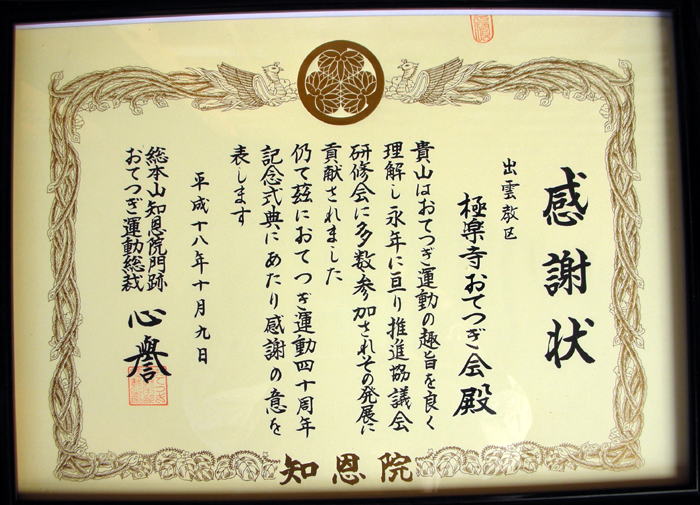 感謝状
出雲教区
極楽寺おてつぎ会殿
貴山はおてつぎ運動の趣旨を良く
理解し永年に亘り推進協議会
研修会に多数参加されその発展に
貢献されました
仍て茲におてつぎ運動四十周年
記念式典にあたり感謝の意を
表します
平成十八年十月九日
総本山知恩院門跡
おてつぎ運動総裁
心譽
知恩院